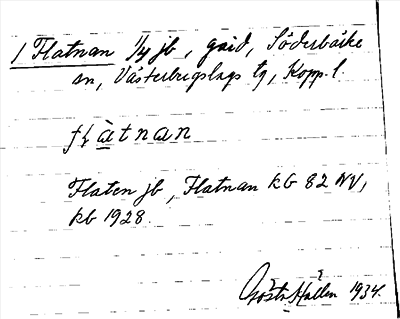 1 Flatnan 1/4 jb, gård, Söderbärke
sn, Västerbergslags tg, Kopp. l.
flàtnan
Flaten jb, Flatnan kb 82 NV,
kb 1928.
Gösta Hallen 1934.